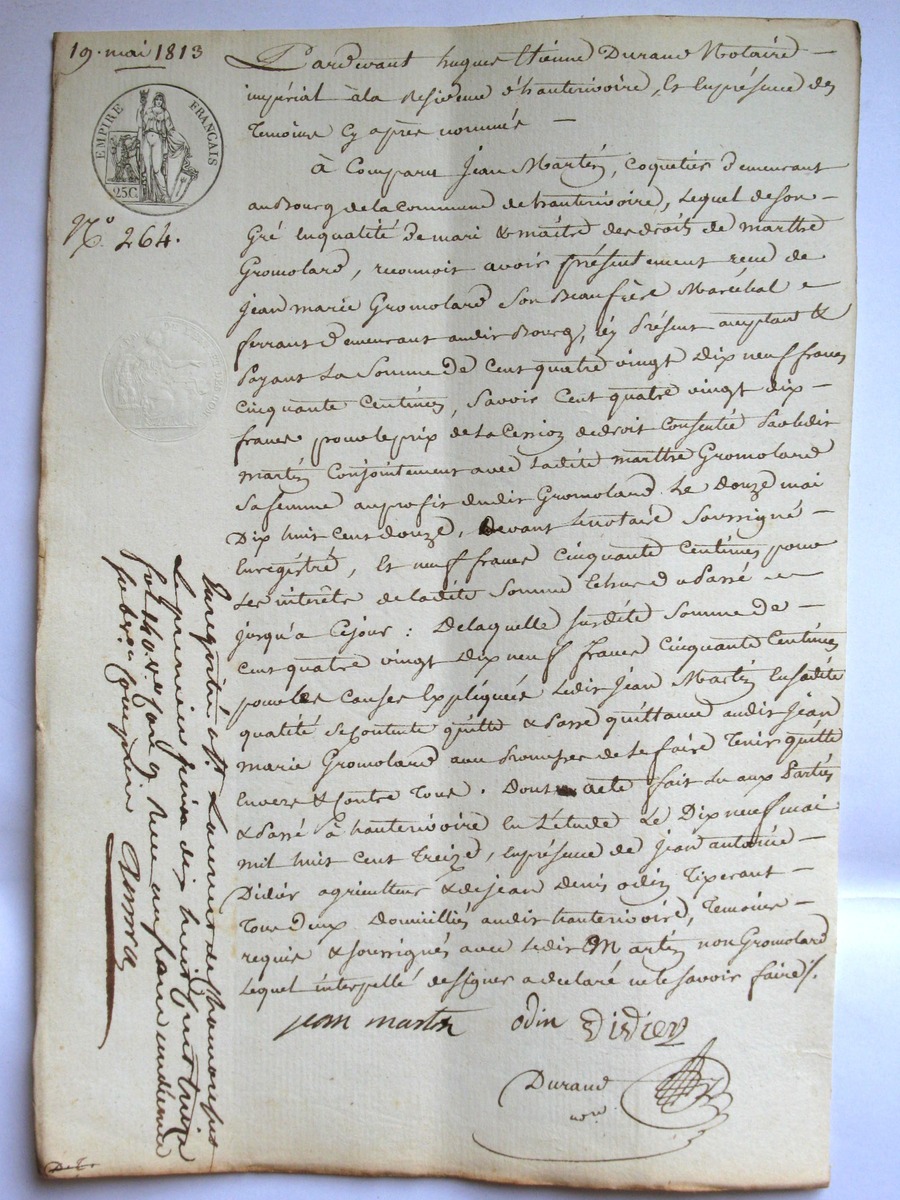 19. mai 1813
EMPIRE FRANÇAIS
25 C.
N.º 264.
Pardevant hugues Etienne Durand Notaire
impérial à la Residence d'hauterivoire, & Enprésence des
Temoins Cy après nommés
à Comparu Jean Martin, Coquetier Demeurant
au Bourg de la Commune de hauterivoire, Lequel de Son
Gré En qualité de mari & maître des droits de Marthe
Gromolard, reconnoit avoir présentement recu de
jean marie Gromolard Son Beaufrère Maréchal
ferrant Demeurant audit Bourg, icy Présent acceptant &
Payant La Somme de Cent quatre vingt Dix neuf francs
Cinquante Centimes, Savoir Cent quatre vingt dix
francs pour le prix de la Cession de droit Consentie Par ledit
martin Conjointement avec Ladite marthe Gromolard
Sa femme au profit dudit Gromolard Le Douze mai
Dix huit Cent douze, Devant Le notaire Soussigné
Enregistré, Et neuf francs Cinquante Centimes pour
Les interêts de ladite Somme Echus du Passé
jusqu'a Cejour : De laquelle Susdite Somme de
Cent quatre vingt Dix neuf francs Cinquante Centimes
pour les Causes Expliquées Ledit Jean Martin En sadite
qualité Se Contente quitte & Passe quittance audit Jean
Marie Gromolard avec Promesse de Le faire Tenir quitte
Envers & Contre Tous. Dont acte fait Lu aux Parties
& Passé à hauterivoire En L'étude Le Dix neuf mai
mil huit Cent Treize, En présence de Jean antoine
Didier agriculteur & de jean Denis odin Tixerant
Tous deux Domiciliés audit hauterivoire, Temoins
requis & soussignés avec Ledit Martin non Gromolard
Lequel interpellé de Signer a déclaré ne le Savoir faire /.
jean martin odin Didier
Durand
nore
Enregistré à St Laurent de Chamousset
Le premier juin dix huit cent treize
fol. 40. v.º Case 9 Recu un franc un dixieme